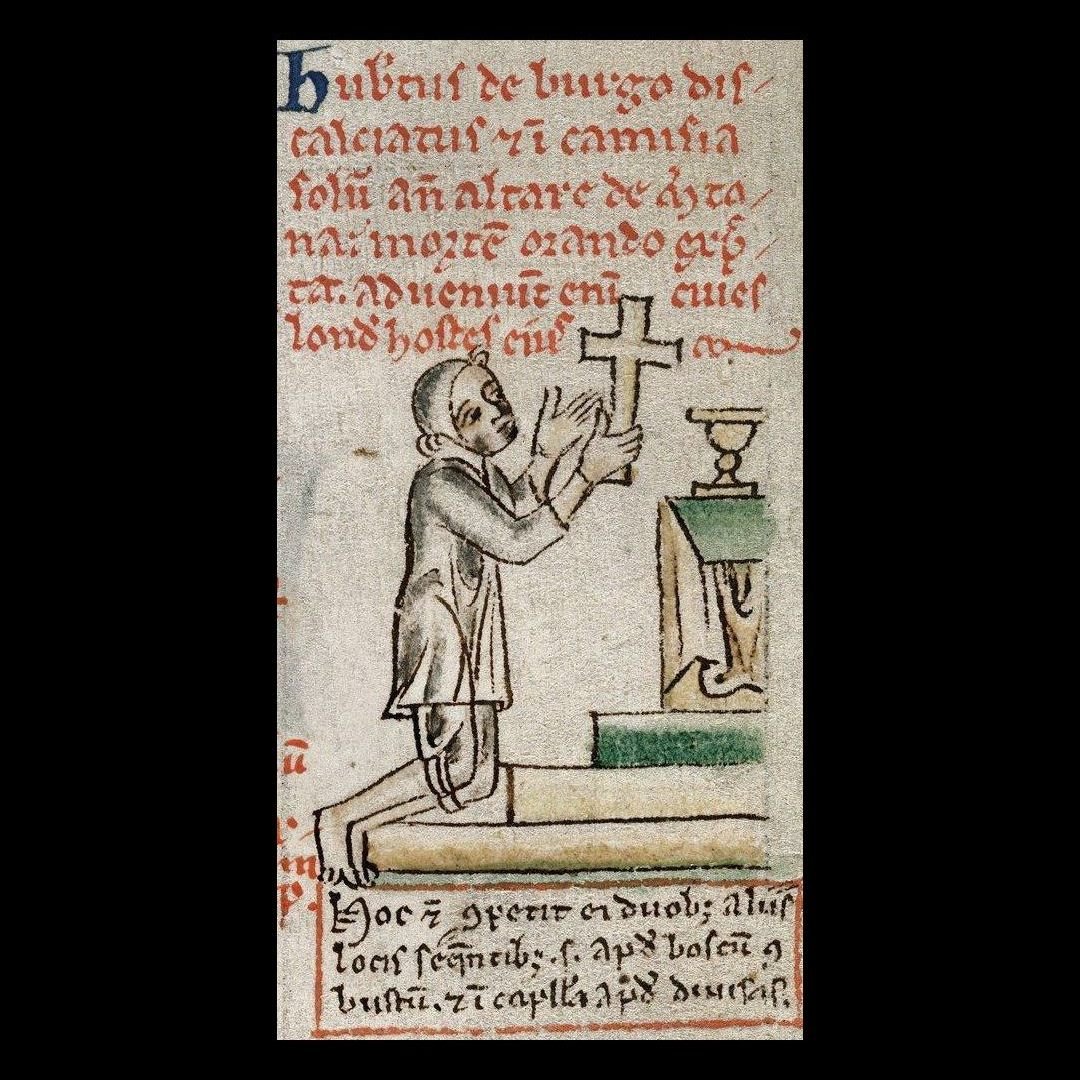 Hub'tus de burgo dis-
calciatus ⁊ ī camisia
solū añ altare de M'to-
na: mortē orando exp-
tat. Adveniūt enī cives
lond' hostes eius
ū
Hoc ⁊ ꝯpetit ei duob; aliis
locis seq̄ntib; .s. apd' boscū ꝯ
bustū. ⁊ ī capll'a apd' divisas.